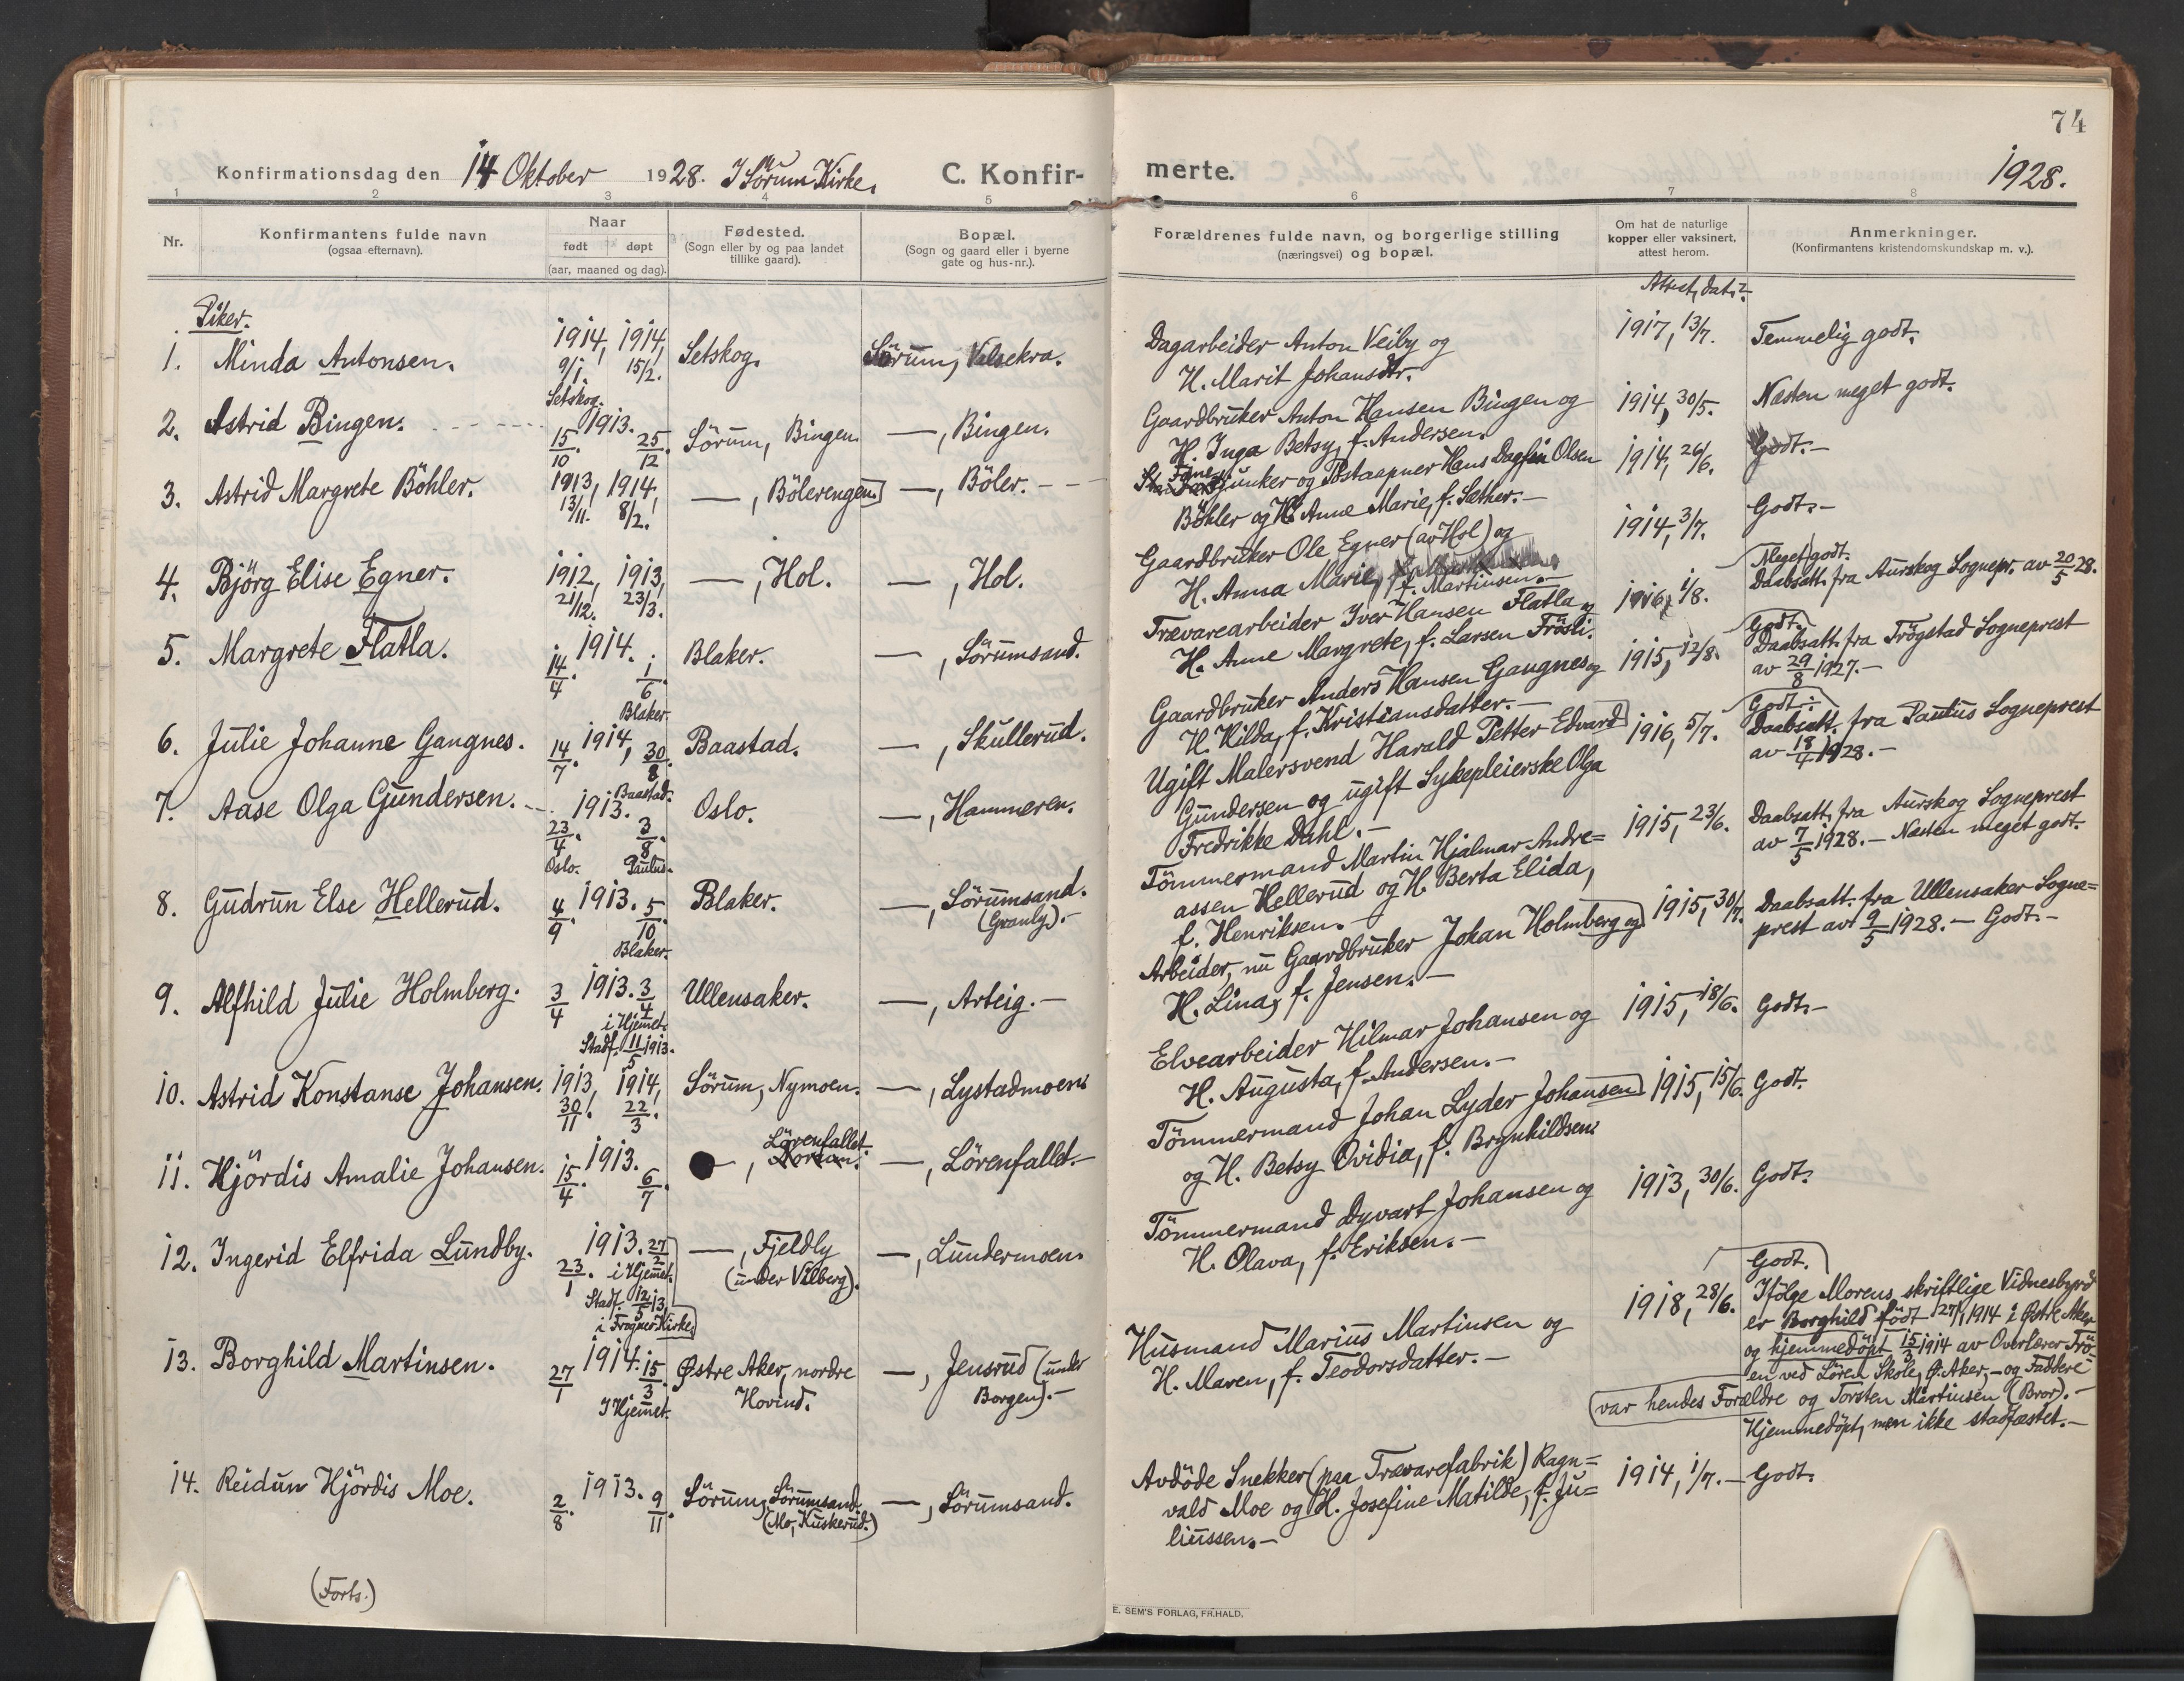 74
Konfirmationsdag den 14 Oktober 1928. I Sörum Kirke.
C. Konfirmerte.
1928.
1 2 3 4 5 6 7 8
Nr.
Konfirmantens fulde navn
(ogsaa efternavn).
Naar
født døpt
(aar, maaned og dag).
Fødested.
(Sogn eller by og paa landet
tillike gaard).
Bopæl.
(Sogn og gaard eller i byerne
gate og hus-nr.).
Forældrenes fulde navn, og borgerlige stilling
(næringsvei) og bopæl.
Om hat de naturlige
kopper eller vaksinert,
attest herom.
Anmerkninger.
(Konfirmantens kristendomskundskap m. v.).
Attest, dat.
Piker.
1. Minda Antonsen. 1914, 9/1. 1914, 15/2. Setskog. Setskog. Sörum, Valsekra.
Dagarbeider Anton Veiby og
H. Marit Johansdtr.
1917, 13/7. Temmelig godt.
2. Astrid Bingen. 1913. 15/10. 25/12. Sörum, Bingen. —, Bingen.
Gaardbruker Anton Hansen Bingen og
H. Inga Betsy, f. Andersen.
1914, 30/5. Næsten meget godt.
3. Astrid Margrete Böhler. 1913, 13/11. 1914, 8/2. —, Bölerengen. —, Böler.
Fanejunker og Postaapner Hans Dagfin Olsen
Böhler og H. Anne Marie, f. Sæther.—
1914, 26/6. Godt.—
4. Björg Elise Egner. 1912, 21/12. 1913, 23/3. —, Hol. —, Hol.
Gaardbruker Ole Egner (av Hol) og
H. Anna Marie, f. Martinsen.—
1914, 3/7. Godt.—
5. Margrete Flatla. 1914. 14/4. 1/6. Blaker. Blaker. —, Sörumsand.
Trævarearbeider Iver Hansen Flatla og
H. Anne Margrete, f. Larsen Frösli.
1916, 1/8. Meget godt.
Daabsatt. fra Aurskog Sognepr. av 20/5 28.
6. Julie Johanne Gangnes. 1914, 14/7. 30/8. Baastad. Baastad. —, Skullerud.
Gaardbruker Anders Hansen Gangnes og
H. Hilda, f. Kristiansdatter.—
1915, 12/8. Godt.
Daabsatt. fra Trögstad Sogneprest
av 29/8 1927.—
7. Aase Olga Gundersen. 1913. 23/4. Oslo. 3/8. Paulus. Oslo. —, Hammeren.
Ugift Malersvend Harald Petter Edvard
Gundersen og ugift Sykepleierske Olga
Fredrikke Dahl.—
1916, 5/7. Godt.
Daabsatt. fra Paulus Sogneprest
av 18/4 1928.—
8. Gudrun Else Hellerud. 1913. 4/9 5/10. Blaker. Blaker. —, Sörumsand.
(Granly).—
Tömmermand Martin Hjalmar Andre=
assen Hellerud og H. Berta Elida,
f. Henriksen.
1915, 23/6. Daabsatt. fra Aurskog Sogneprest
av 7/5 1928.— Næsten meget godt.
9. Alfhild Julie Holmberg. 1913. 3/4 3/4 i Hjemmet. Stadf. 11/5 1913. Ullensaker. —, Arteig.—
Arbeider, nu Gaardbruker Johan Holmberg og
H. Lina, f. Jensen.—
1915, 30/7. Daabsatt. fra Ullensaker Sogne=
prest av 9/5 1928.— Godt.—
10. Astrid Konstanse Johansen. 1913, 30/11. 1914, 22/3. Sörum, Nymoen. —, Lystadmoen.
Elvearbeider Hilmar Johansen og
H. Augusta, f. Andersen.—
1915, 18/6. Godt.—
11. Hjördis Amalie Johansen. 1913. 15/4. 6/7. —, Lörenfallet. —, Lörenfallet.—
Tömmermand Johan Lyder Johansen
og H. Betsy Ovidia, f. Brynhildsen.
1915, 15/6. Godt.
12. Ingerid Elfrida Lundby. 1913. 23/1. 27/2 i Hjemmet. Stadf. 12/5 13, i Frogner Kirke. —, Fjeldly
(under Vilberg). —, Lundermoen.
Tömmermand Dyvart Johansen og
H. Olava, f. Eriksen.—
1913, 30/6. Godt.
13. Borghild Martinsen. 1914. 27/1 15/3. I Hjemmet. Østre Aker, nordre
Hovind. —, Jensrud (under
Borgen).—
Husmand Marius Martinsen og
H. Maren, f. Teodorsdatter.—
1918, 28/6. Godt.
Ifölge Morens skriftlige Vidnesbyrd
er Borghild födt 27/1 1914 i Østre Aker
og hjemmedöpt 15/3 1914 av Overlærer Frö-
en ved Lören Skole, Ø. Aker,— og Faddere
var hendes Forældre og Torsten Martinsen (Bror).—
Hjemmedöpt, men ikke stadfæstet.—
14. Reidun Hjördis Moe. 1913. 2/8. 9/11. Sörum, Sörumsand.
(Mo, Kuskerud.) —, Sörumsand.
Avdöde Snekker (paa Trævarefabrik) Ragn=
vald Moe og H. Josefine Matilde, f. Ju=
liussen.—
1914, 1/7.— Godt.
(Forts.)
E. SEM'S FORLAG, FR.HALD.